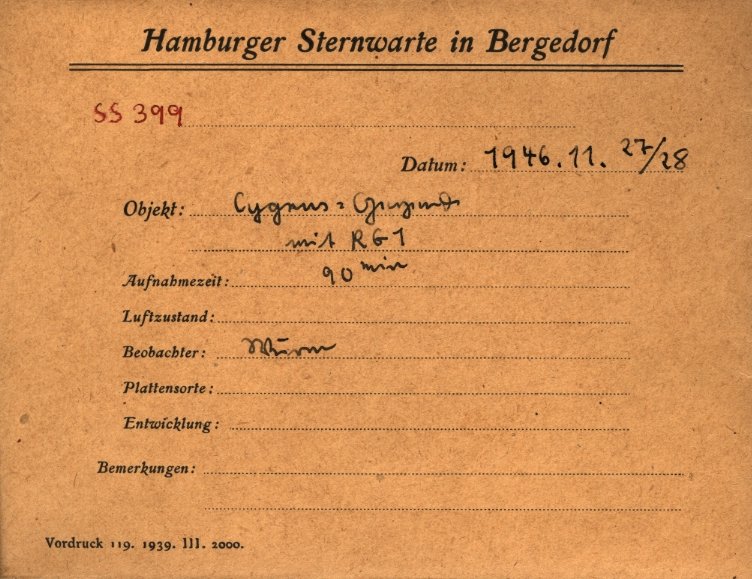 Hamburger Sternwarte in Bergedorf
SS 399
Datum: 1946.11.27/28
Objekt: Cygnus =
mit RG1
Aufnahmezeit: 90 min
Luftzustand:
Beobachter: Wurm
Plattensorte:
Entwicklung:
Bemerkungen:
Vordruck 119. 1939. III. 2000.